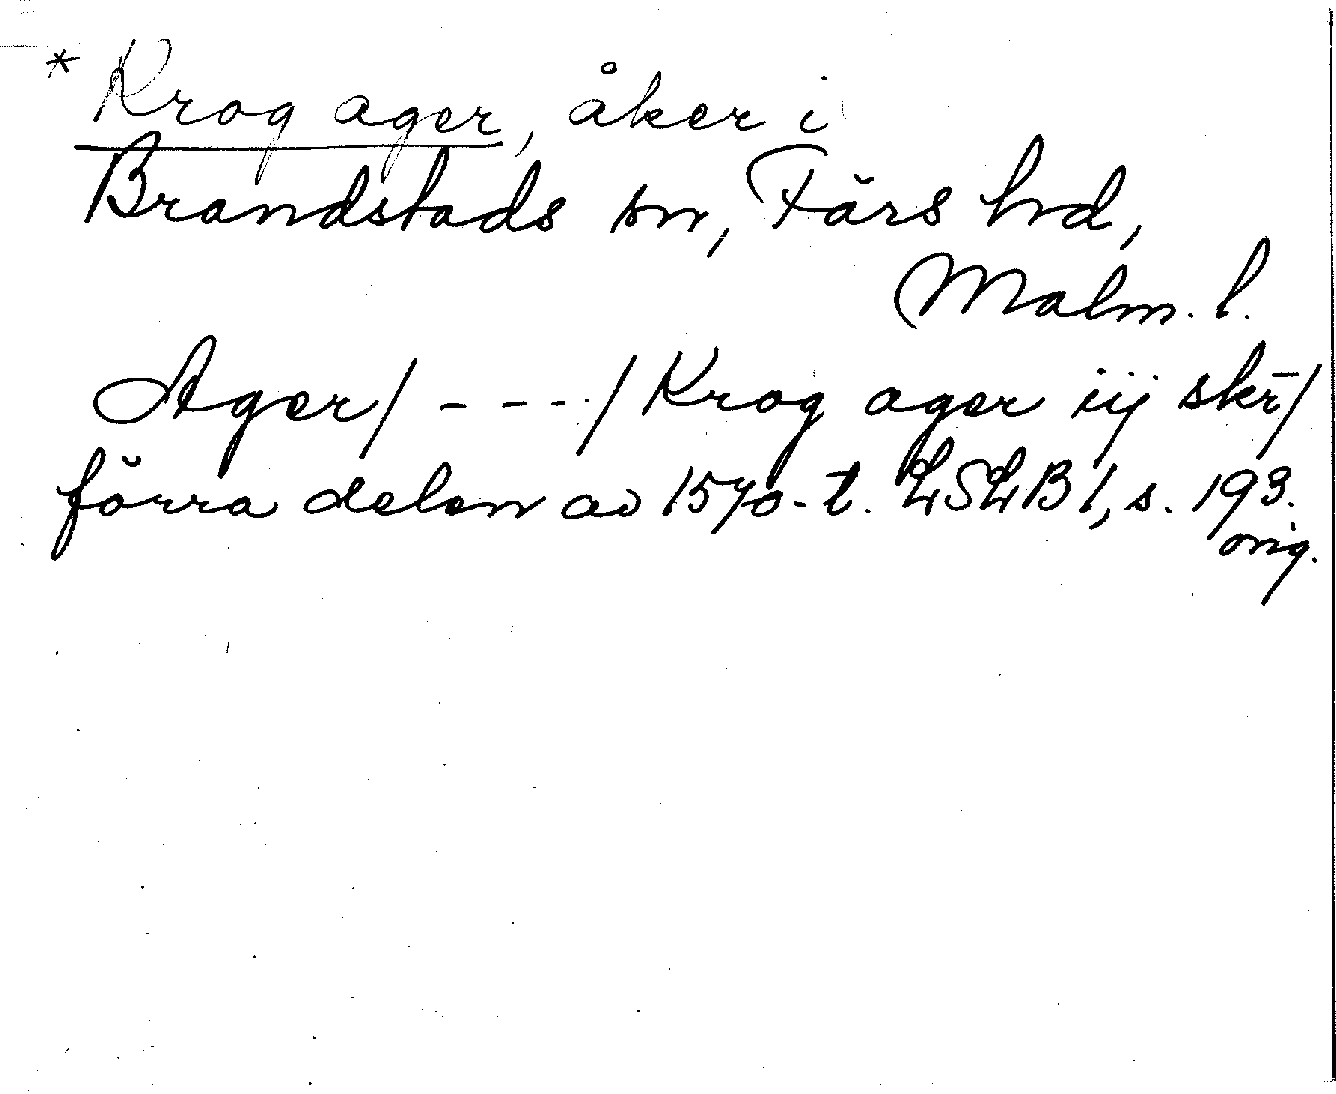 * Krog ager, åker i
Brandstads sn, Färs hrd,
Malm. l.
Ager/ - - - / Krog ager iij skr̄/
förra delen av 1570-t. LSLB I, s. 193.
orig.